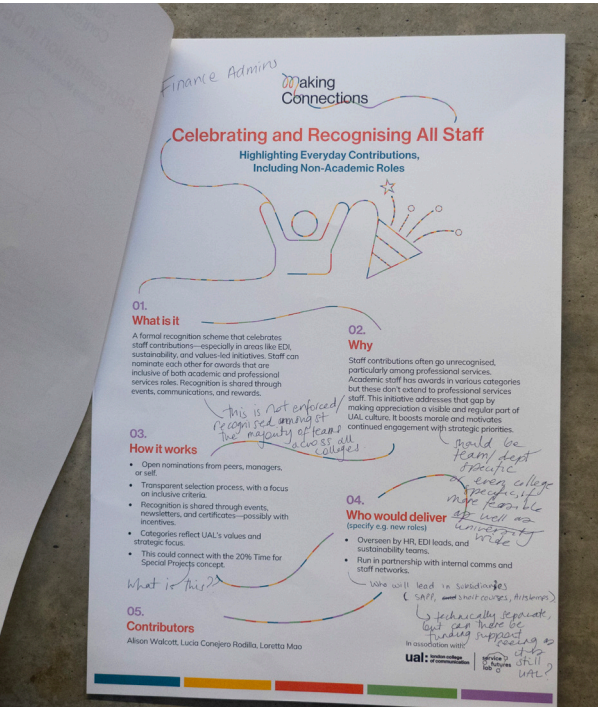 Finance Admins
Making
Connections
Celebrating and Recognising All Staff
Highlighting Everyday Contributions,
Including Non-Academic Roles
01.
What is it
A formal recognition scheme that celebrates
staff contributions—especially in areas like EDI,
sustainability, and values-led initiatives. Staff can
nominate each other for awards that are
inclusive of both academic and professional
services roles. Recognition is shared through
events, communications, and rewards.
this is not enforced/
recognised amongst
the majority of teams
across all
colleges
02.
Why
Staff contributions often go unrecognised,
particularly among professional services.
Academic staff has awards in various categories
but these don't extend to professional services
staff. This initiative addresses that gap by
making appreciation a visible and regular part of
UAL culture. It boosts morale and motivates
continued engagement with strategic priorities.
should be
team/dept
specific
even college
specific, if
more feasible
as well as
university
wide
03.
How it works
• Open nominations from peers, managers,
or self.
• Transparent selection process, with a focus
on inclusive criteria.
• Recognition is shared through events,
newsletters, and certificates—possibly with
incentives.
• Categories reflect UAL's values and
strategic focus.
• This could connect with the 20% Time for
Special Projects concept.
What is this?
04.
Who would deliver
(specify e.g. new roles)
• Overseen by HR, EDI leads, and
sustainability teams.
• Run in partnership with internal comms and
staff networks.
who will lead in subsidiaries
short courses, Artstemps)
technically separate,
but can there be
funding support
seeing as
it is
still
UAL?
05.
Contributors
Alison Walcott, Lucia Conejero Rodilla, Loretta Mao
In association with:
ual: london college
of communication
service
futures
lab